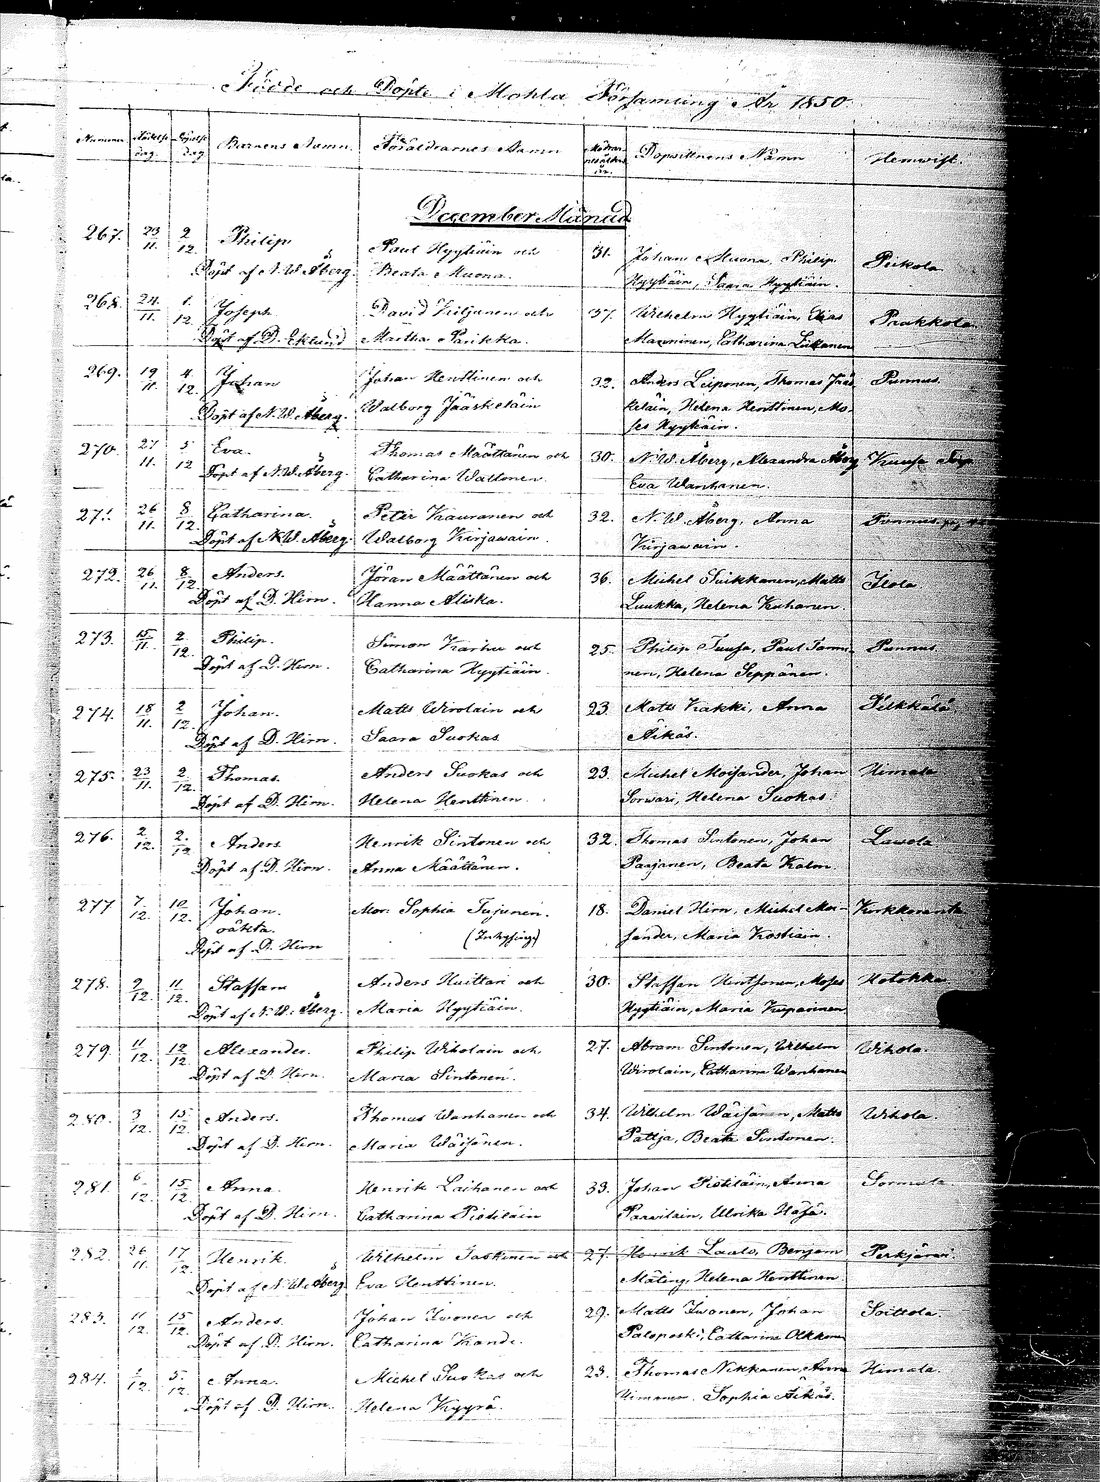 Födde och Döpte i Mohla Församling År 1850.
Nummer Födelse dag. Döpelse dag Barnens Namn. Föräldrarnes Namn Modrens ålder år. Dopvittnens Namn Hemvist.
December Månad
267. 23/11. 2/12. Philip. Paul Hyytiäin och 31. Johan Muona, Philip
Döpt af N. W. Åberg. Beata Muona. Hyytiäin, Saara Hyytiäin. Peikola
268. 24/11. 1./12. Joseph David Kiljunen och 37. Wilhelm Hyytiäin, Elias Paakkola.
Döpt af D. Eklund Martha Parikka. Mamninen, Catharina Liikanen
269. 19/11. 4/12. Johan Johan Henttinen och 32. Anders Liiponen, Thomas Jääs Punnus.
Döpt af N. W. Åberg. Walborg Jääskeläin keläin, Helena Henttinen, Mo-
ses Hyytiäin.
270. 27/11. 5/12 Eva. Thomas Määttänen och 30. N. W. Åberg, Alexandra Åberg Kuusa
Döpt af N. W. Åberg. Catharina Waltonen. Eva Wanhanen.
271. 26/11. 8/12. Catharina. Peter Kauranen och 32. N. W. Åberg. Anna Punnus
Döpt af N. W. Åberg. Walborg Kirjawain. Kirjawain.
272. 26/11. 8/12. Anders. Jöran Määttänen och 36. Michel Suikkanen, Matts Ilola
Döpt af D. Hirn. Hanna Aliska. Luukka, Helena Kuhanen.
273. 15/11. 2/12. Philip. Simon Karhu och 25. Philip Tuusa, Paul Tammi- Punnus.
Döpt af D. Hirn. Catharina Hyytiäin. nen, Helena Seppänen.
274. 18/11. 2/12. Johan. Matts Wirolain och 23. Matts Kakki, Anna Pilkkälä
Döpt af D. Hirn. Saara Suokas Äikäs.
275. 23/11. 2/12. Thomas. Anders Suokas och 23. Michel Moisander, Johan Himala.
Döpt af D. Hirn. Helena Henttinen. Sorwari, Helena Suokas.
276. 2/12. 2./12 Anders Henrik Sintonen och 32. Thomas Sintonen, Johan Lawola
Döpt af D. Hirn. Anna Määttänen. Paajanen, Beata Kalm.
277 7./12. 10/12. Johan. Mor: Sophia Tujunen. 18. Daniel Hirn, Michel Moi- Kirkkoranta
oäkta. (Inhysing) sander, Maria Kostiain.
Döpt af D. Hirn
278. 9/12. 11/12. Staffan Anders Huittari och 30. Staffan Hentsonen, Moses Hotokka
Döpt af N. W. Åberg. Maria Hyytiäin. Hyytiäin, Maria Kuparinen
279. 11/12. 12/12. Alexander. Philip Wiholain och 27. Abram Sintonen, Wilhelm Wihola.
Döpt af D. Hirn. Maria Sintonen. Wirolain, Catharina Wanhanen
280. 3/12. 15./12. Anders. Thomas Wanhanen och 34. Wilhelm Wäisänen, Matts Wihola.
Döpt af D. Hirn. Maria Wäisänen. Pattja, Beata Sintonen.
281. 6/12. 15/12. Anna. Henrik Laihanen och 33. Johan Pistiläin, Anna Sormula.
Döpt af D. Hirn. Catharina Pistiläin Paavilain, Ulrika Häfä.
282. 26/11. 17/12. Henrik. Wilhelm Jaskinen och 27. Henrik Laalo, Benjam Perkjärvi.
Döpt af N. W. Åberg. Eva Henttinen. Mäling, Helena Henttinen
283. 11/12. 15/12. Anders. Johan Iivonen och 29. Matts Iivonen, Johan Soittola.
Döpt af D. Hirn. Catharina Kande. Paloposki, Catharina Olkkonen
284. 1/12 5./12. Anna. Michel Suokas och 23. Thomas Nikkanen, Anna Himala
Döpt af D. Hirn. Helena Kyyrä. Himanen. Sophia Äikäs.